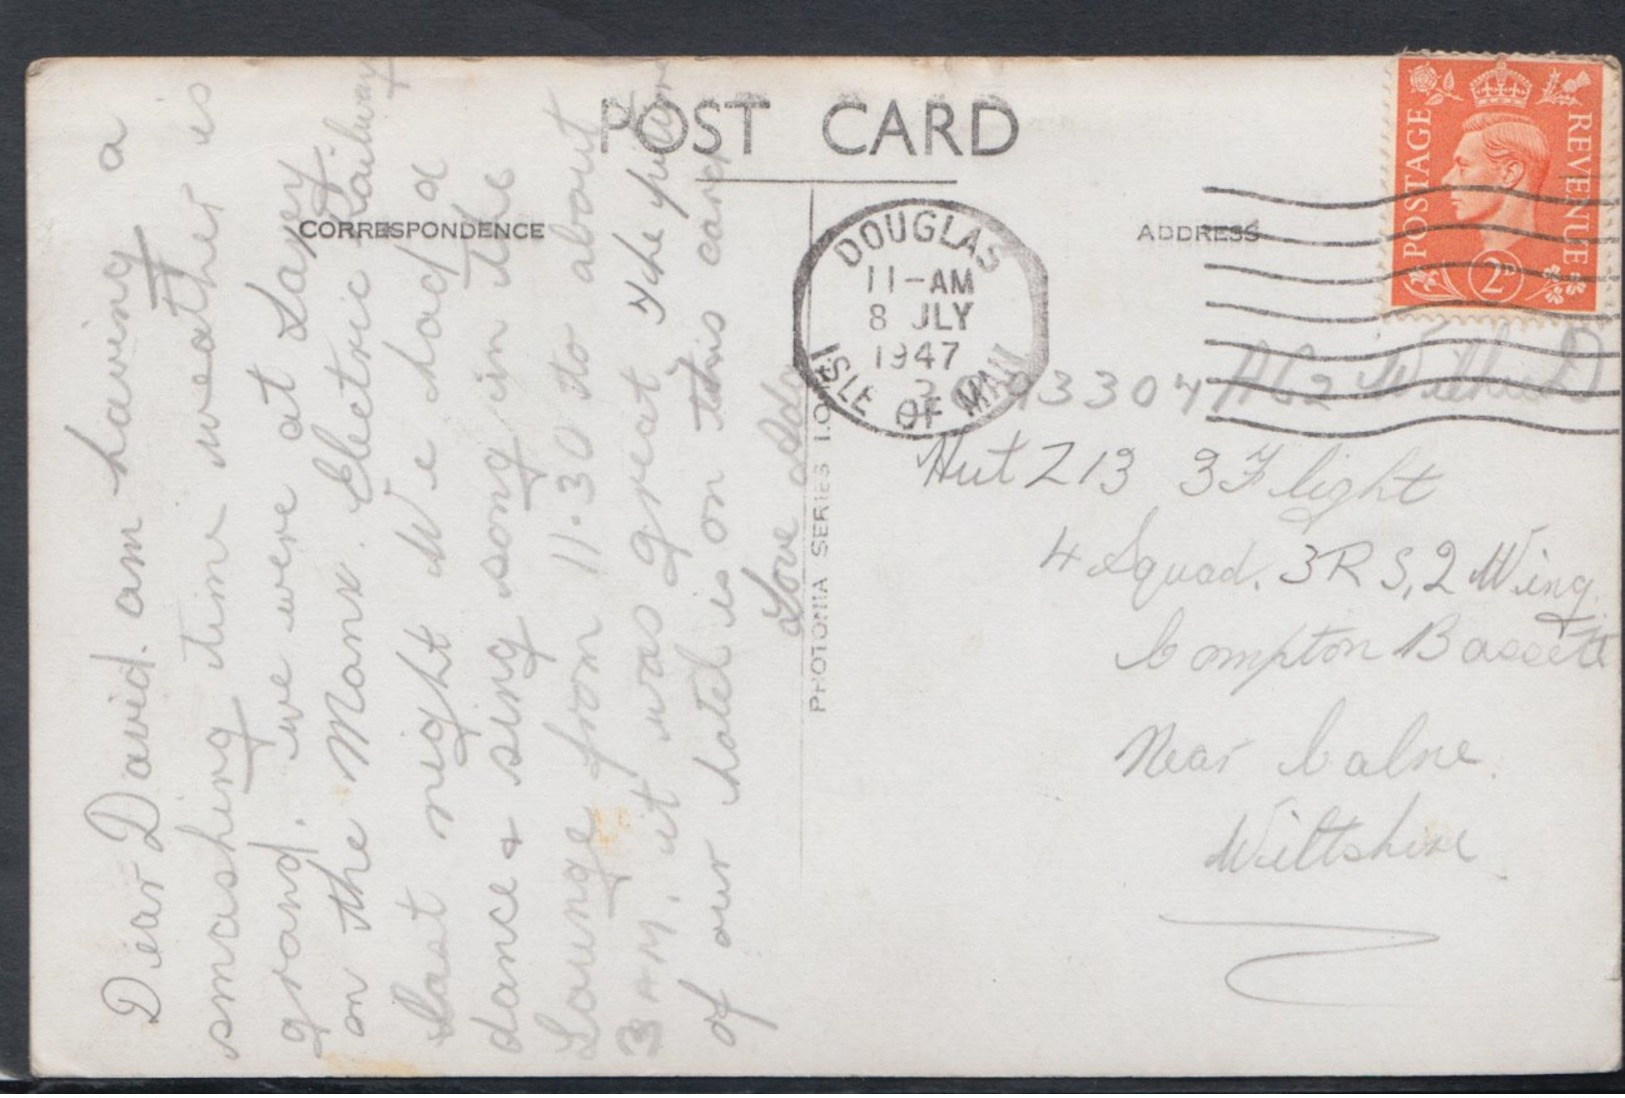 POST CARD
CORRESPONDENCE
ADDRESS
POSTAGE
REVENUE
2D
DOUGLAS
11-AM
8 JLY
1947
ISLE OF MAN
PHOTONIA SERIES I.O.
Dear David. am having a
smashing time weather is
grand. we were at Laxey
on the Manx. Electric Railway
Last night We had a
dance & sing song in the
Lounge from 11.30 to about
3 AM. it was great The picture
of our hotel is on this card
Love
93307 AC2
Hut Z13 3 Flight
4 Squad. 3RS, 2 Wing.
Compton Bassett
Near Calne.
Wiltshire